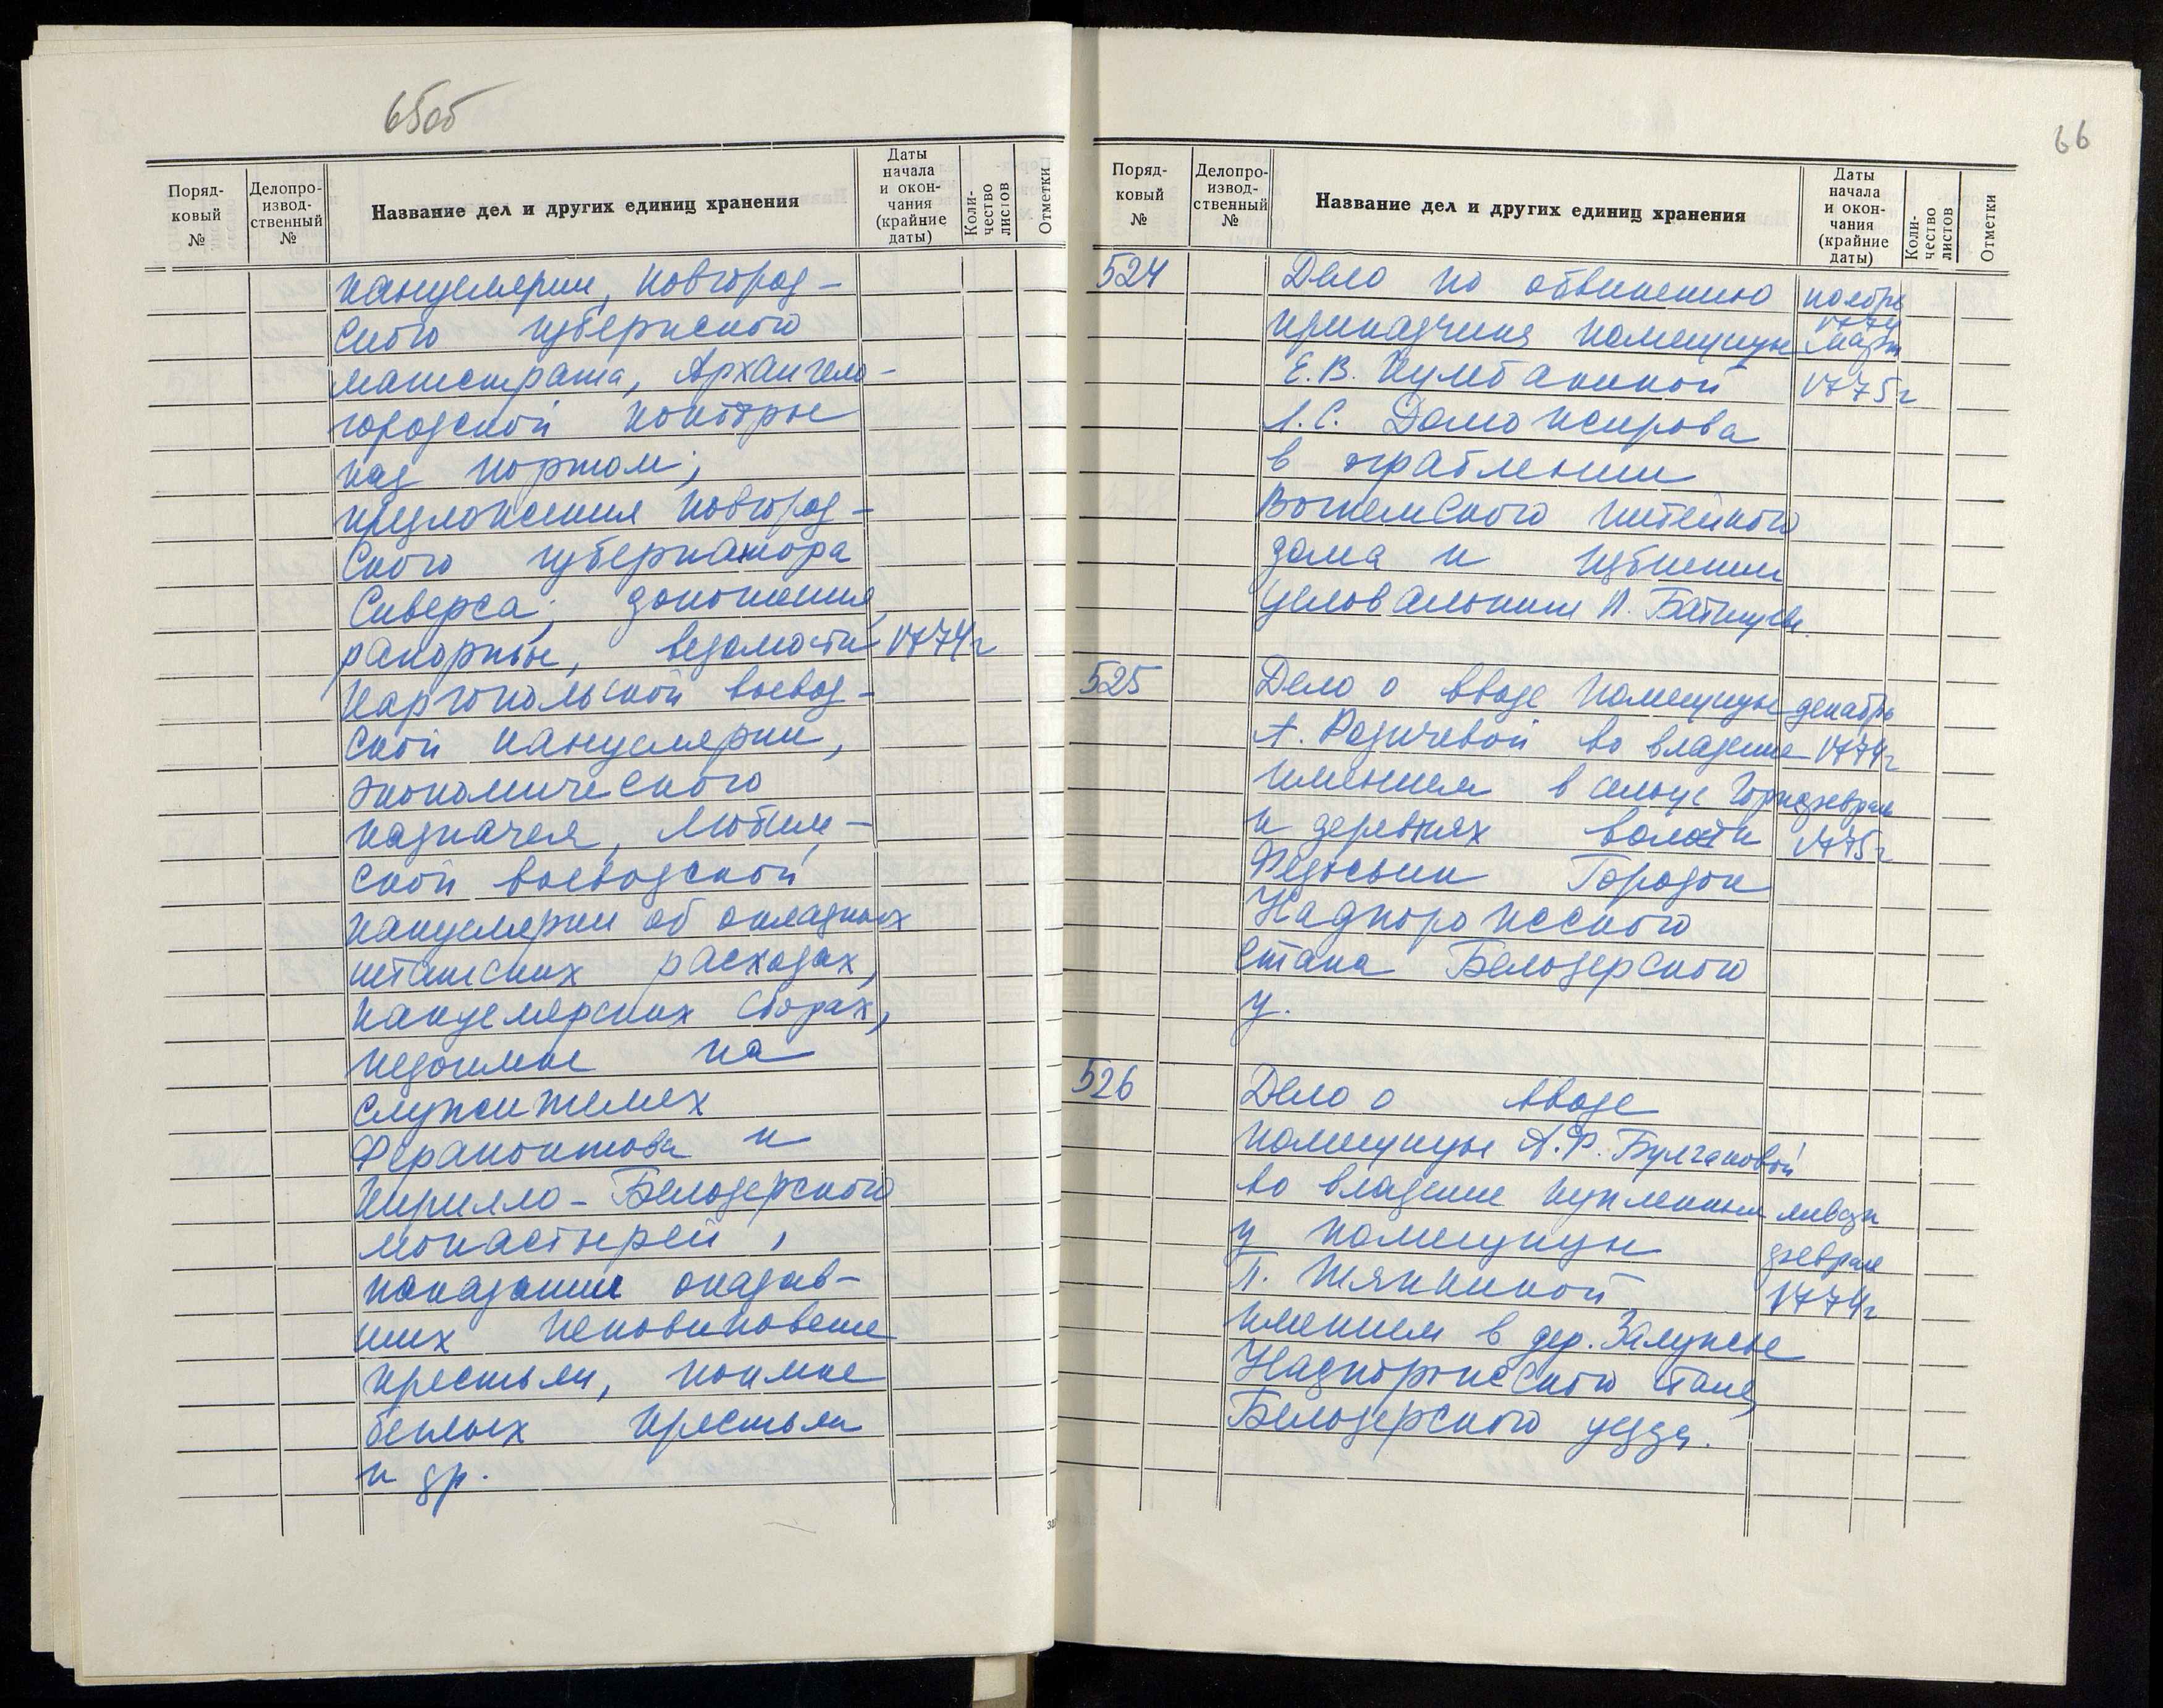 65об
Поряд-
ковый
№
Делопро-
извод-
ственный
№
Название дел и других единиц хранения
Даты
начала
и окон-
чания
(крайние
даты)
Коли-
чество
листов
Отметки
канцелярии, Новгород-
ского губернского
магистрата, Архангело-
городской конторы
над портом;
предложения Новгород-
ского губернатора
Сиверса; доношения,
рапорты, ведомости 1774г
Каргопольской воевод-
ской канцелярии,
экономического
казначея, Любим-
ской воеводской
канцелярии об окладных
штатских расходах,
канцелярских сборах,
недоимке на
служителях
Ферапонтова и
Кирилло-Белозерского
монастырей,
наказании оказав-
ших неповиновение
крестьян, поимке
беглых крестьян
и др.
66
Поряд-
ковый
№
Делопро-
извод-
ственный
№
Название дел и других единиц хранения
Даты
начала
и окон-
чания
(крайние
даты)
Коли-
чество
листов
Отметки
524 Дело по обвинению ноябрь
1774
приказчика помещицы март
Е.В. 1775г
Л.С. Доможирова
в ограблении
Вожемского питейного
дома и убиении
целовальника П.
525 Дело о вводе помещицы декабрь
А. Родичевой во владение 1774г
имением в сельце февраль
и деревнях волости 1775г
Федосьин Городок
Надпорожского
стана Белозерского
у.
526 Дело о вводе
помещицы А.Ф. Булгаковой
во владение купленным январь
у помещицы февраль
П. 1774г
имением в дер. Залужье
Надпорожского стана,
Белозерского уезда.